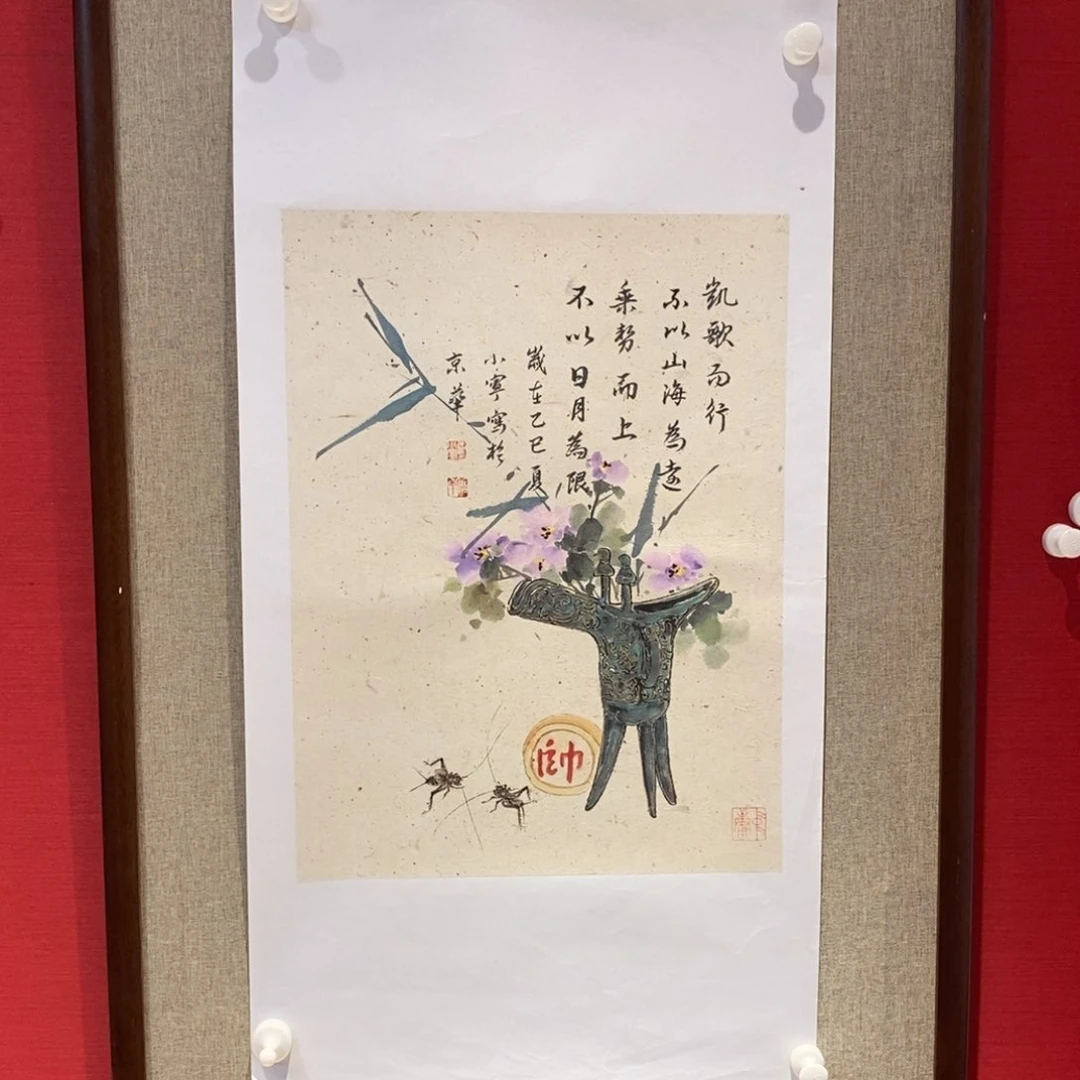 凱歌而行
不以山海為遠
乘勢而上
不以日月為限
歲在乙巳夏
小寧寫於
京華
帥